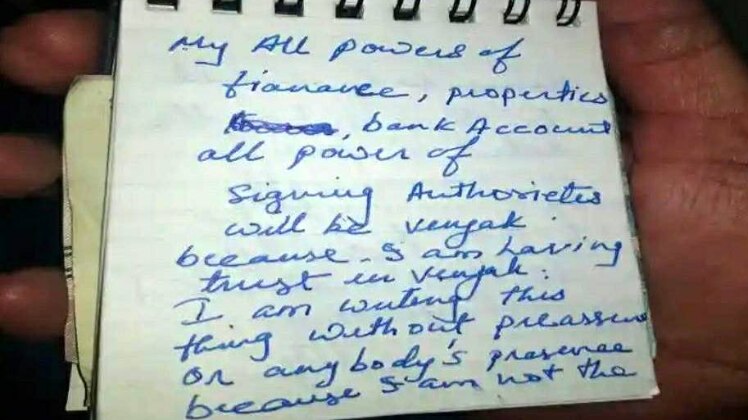 My All powers of
fianance, properties
, bank Account
all power of
Signing Authorietes
will be venyak
because. I am having
trust in venyak.
I am writing this
thing without preassure
or any body's presence
because I am not the